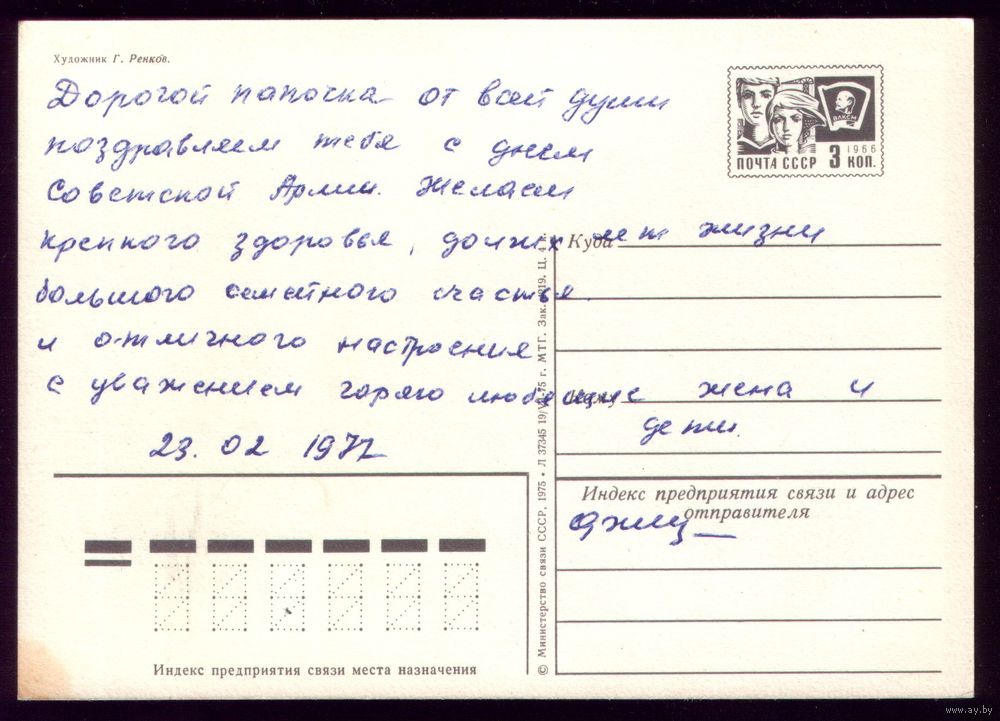 Художник Г. Ренков.
Дорогой папочка от всей души
поздравляем тебя с днем
Советской Армии. Желаем
крепкого здоровья, долгих лет жизни
большого семейного счастья.
и отличного настроения
с уважением горячо любящие жена и
дети.
23.02 1977
ВЛКСМ
1966
ПОЧТА СССР 3 КОП.
Куда
Кому
Индекс предприятия связи и адрес
отправителя
© Министерство связи СССР, 1975 • Л 37345 19/VI-75 г. МТГ. Зак. 219. Ц. 4 к.
Индекс предприятия связи места назначения
www.ay.by